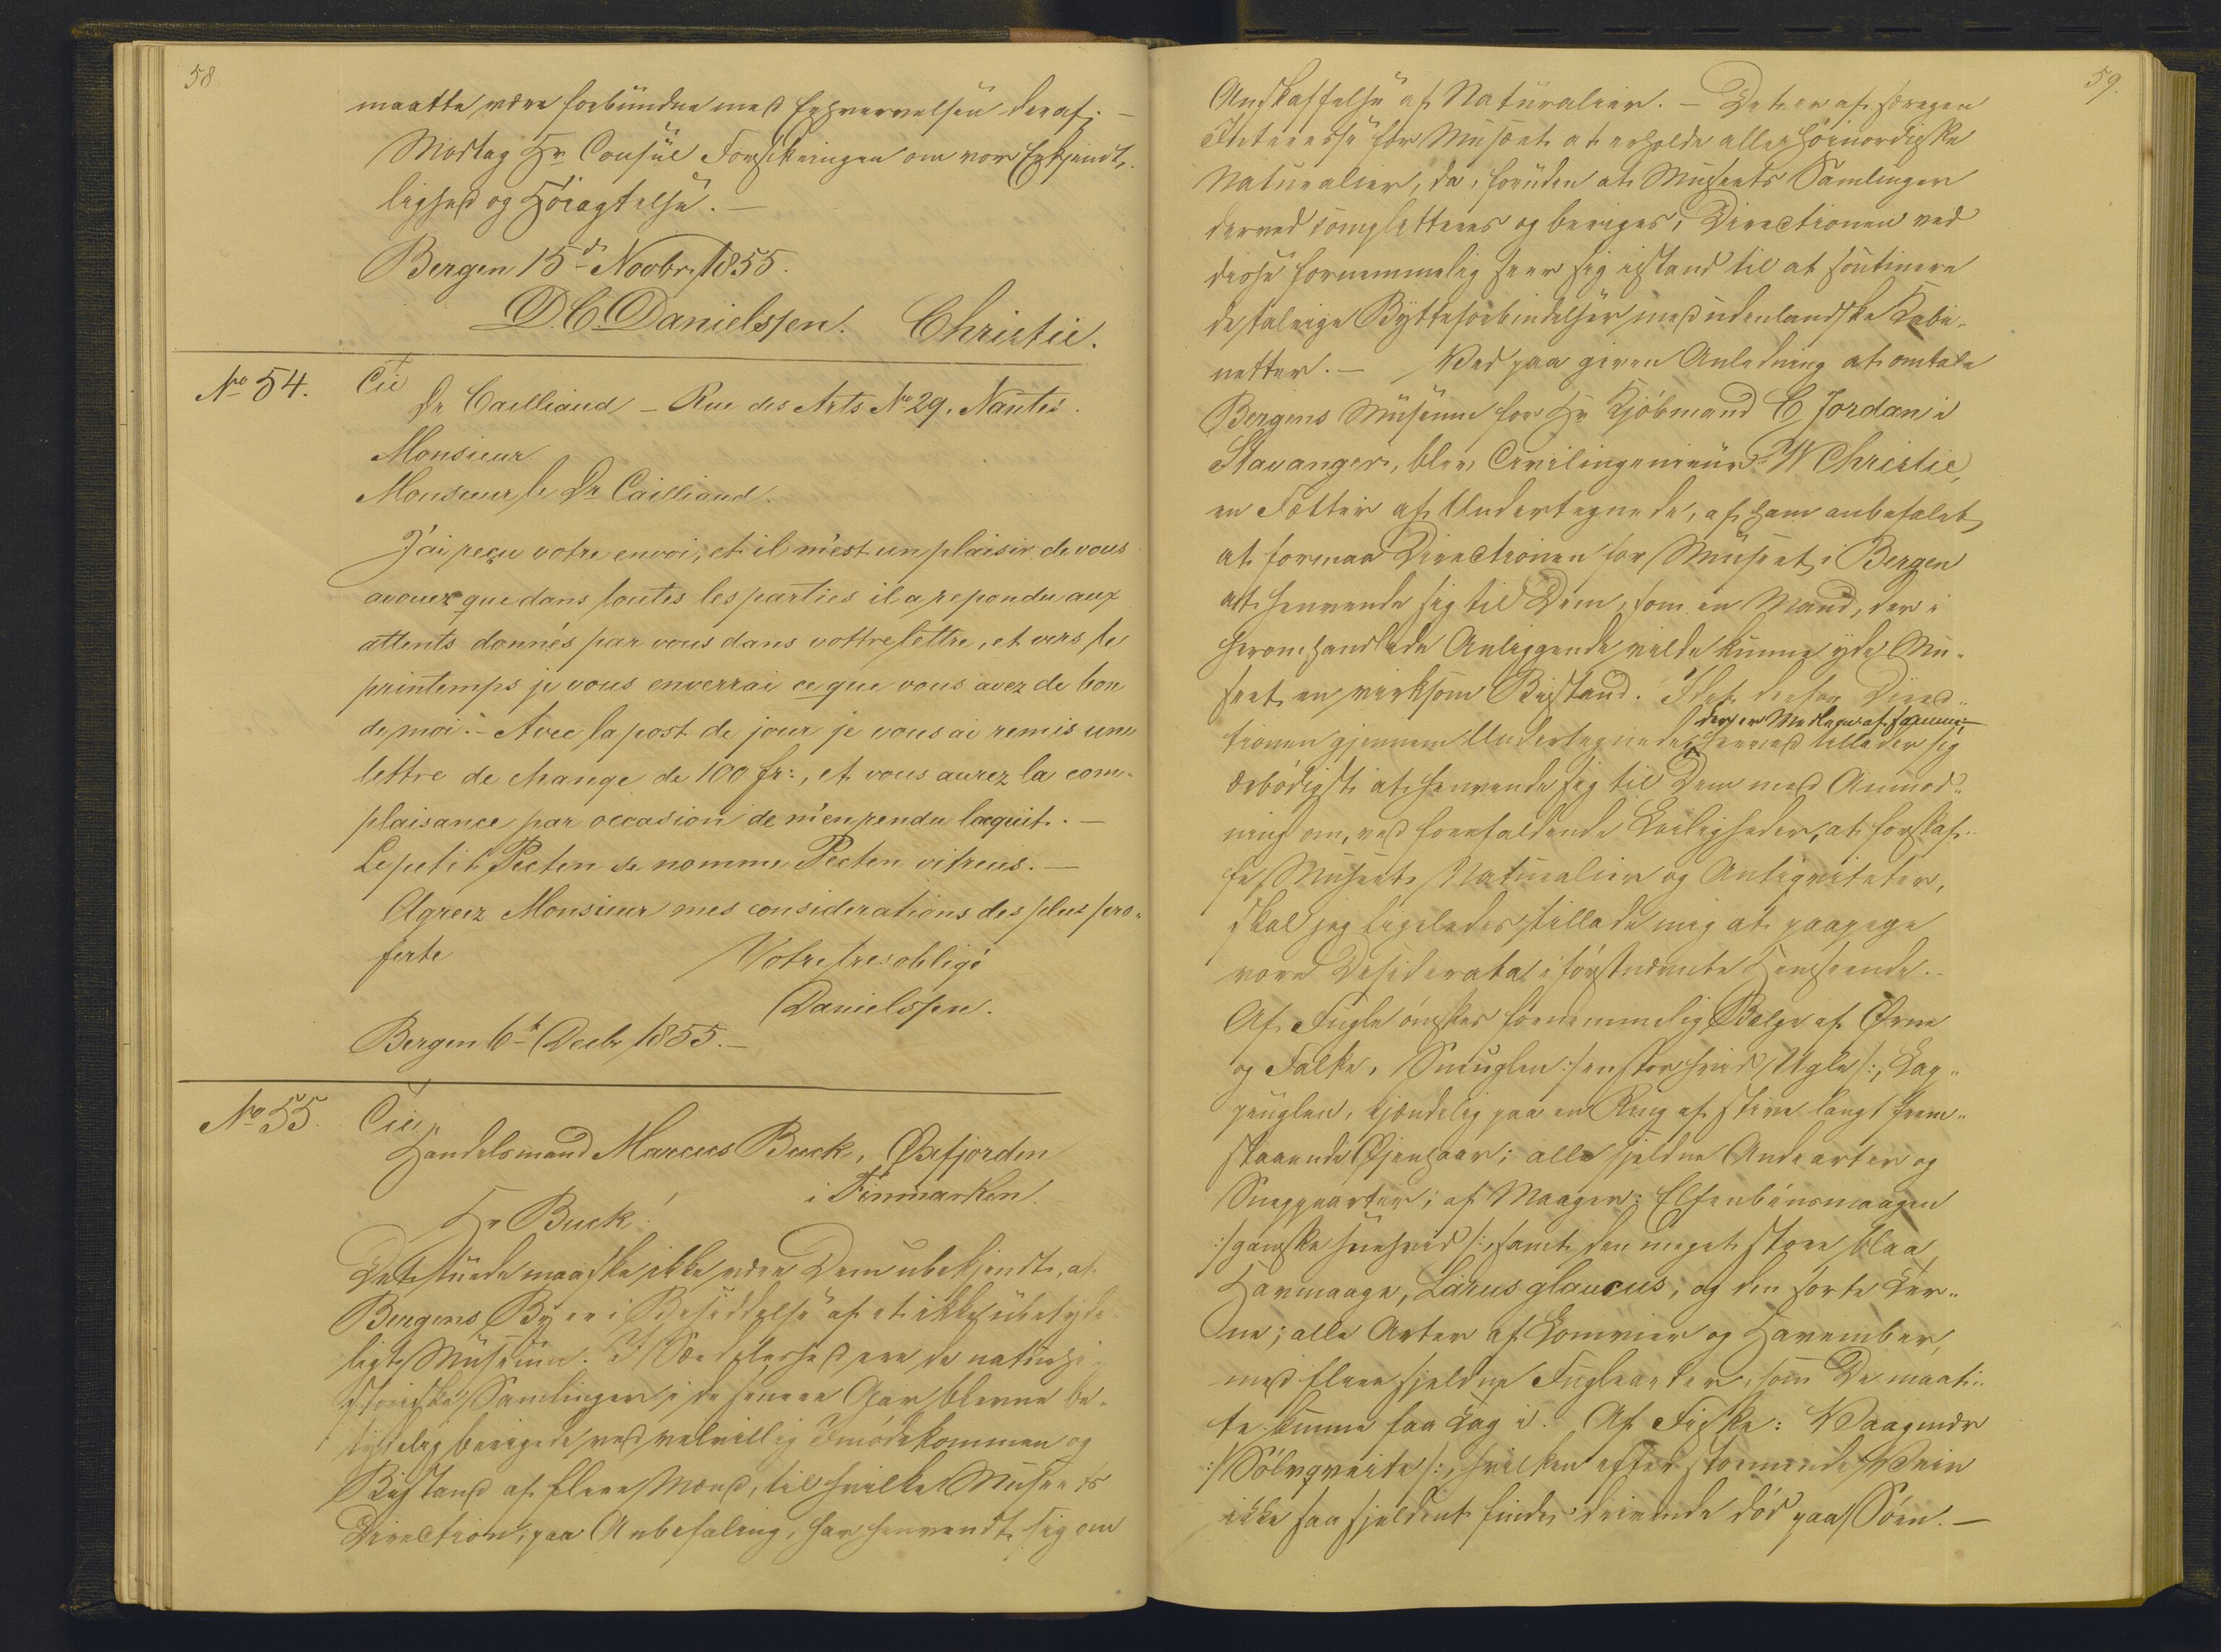 58
maatte være forbundne med Erhvervelsen deraf. —
Modtag Hr Consul Forsikringen om vor Erkjendt-
lighed og Höiagtelse. —
Bergen 15d Novbr 1855.
D. C. Danielssen. Christie.
No 54. Til
Dr Cailliaud – Rue des Arts No 29. Nantes.
Monsieur
Monsieur le Dr Cailliaud.
J'ai reçu votre envoi, et il m'est un plaisir de vous
avouer que dans toutes les parties il a repondu aux
attents donnés par vous dans vottre lettre, et vers le
printemps je vous enverrai ce que vous avez de bon
de moi. – Avec la post de jour je vous ai remis une
lettre de change de 100 fr:, et vous aurez la com-
plaisance par occasion de m'en rendu l'acquit. —
Le petit Pecten se nomme Pecten vitreus. —
Agreez Monsieur mes considerations des plus pro-
ferte
Votre tres obligé
Danielssen.
Bergen 6t Decbr 1855. —
No 55. Til
Handelsmand Marcus Buck, Øxfjorden
i Finmarken.
Hr Buck!
Det turde maaske ikke være Dem ubekjendt, at
Bergens By er i Besiddelse af et ikke ubetyde-
ligt Museum. I Særdeleshed ere de naturhi-
storiske Samlinger i de senere Aar blevne be-
tydelig berigede ved velvillig Imödekommen og
Bistand af flere Mænd, til hvilke Museets
Direction, paa Anbefaling, har henvendt sig om
59.
Anskaffelse af Naturalier. – Det er af særegen
Interesse for Museet at erholde alle höinordiske
Naturalier, da, foruden at Museets Samlinger
derved completteres og beriges, Directionen ved
disse fornemmelig seer sig istand til at continuere
de talrige Bytteforbindelser med udenlandske Kabi-
netter. – Ved paa given Anledning at omtale
Bergens Museum for Hr Kjöbmand C Jordan i
Stavanger, blev Civilingenieur W Christie,
en Fætter af Undertegnede, af ham anbefalet
at formaa Directionen for Museet i Bergen
at henvende sig til Dem, som en Mand, der i
heromhandlede Anliggende vilde kunne yde Mu-
seet en virksom Bistand. Idet derfor Direc-
der er Medlem af samme,
tionen gjennem Undertegnede herved tillader sig
ærbödigst at henvende sig til Dem med Anmod-
ning om, ved forefaldende Leiligheder, at forskaf-
fe Museet Naturalier og Antiqviteter,
skal jeg ligeledes tillade mig at paapege
vore Desiderata i förstnævnte Henseende. –
Af Fugle önskes fornemmelig Belge af Ørne
og Falke, Sneuglen :/ en stor hvid Ugle /:, Lap-
peuglen, kjendelig paa en Ring af stive langt frem-
staaende Øjenhaar; alle sjeldne Andearter og
Sneppearter; af Maager: Elfenbensmaagen
:/ ganske sneehvid /:, samt den meget store blaa
Havmaage, Larus glaucus, og den sorte Ter-
ne; alle Arter af Lomvier og Havember,
med flere sjeldne Fuglearter, som De maat-
te kunne faa Tag i. Af Fiske: Vaagmær
:/ Sölvqveite /:, hvilken efter stormende Veir
ikke saa sjeldent findes drivende död paa Söen. —